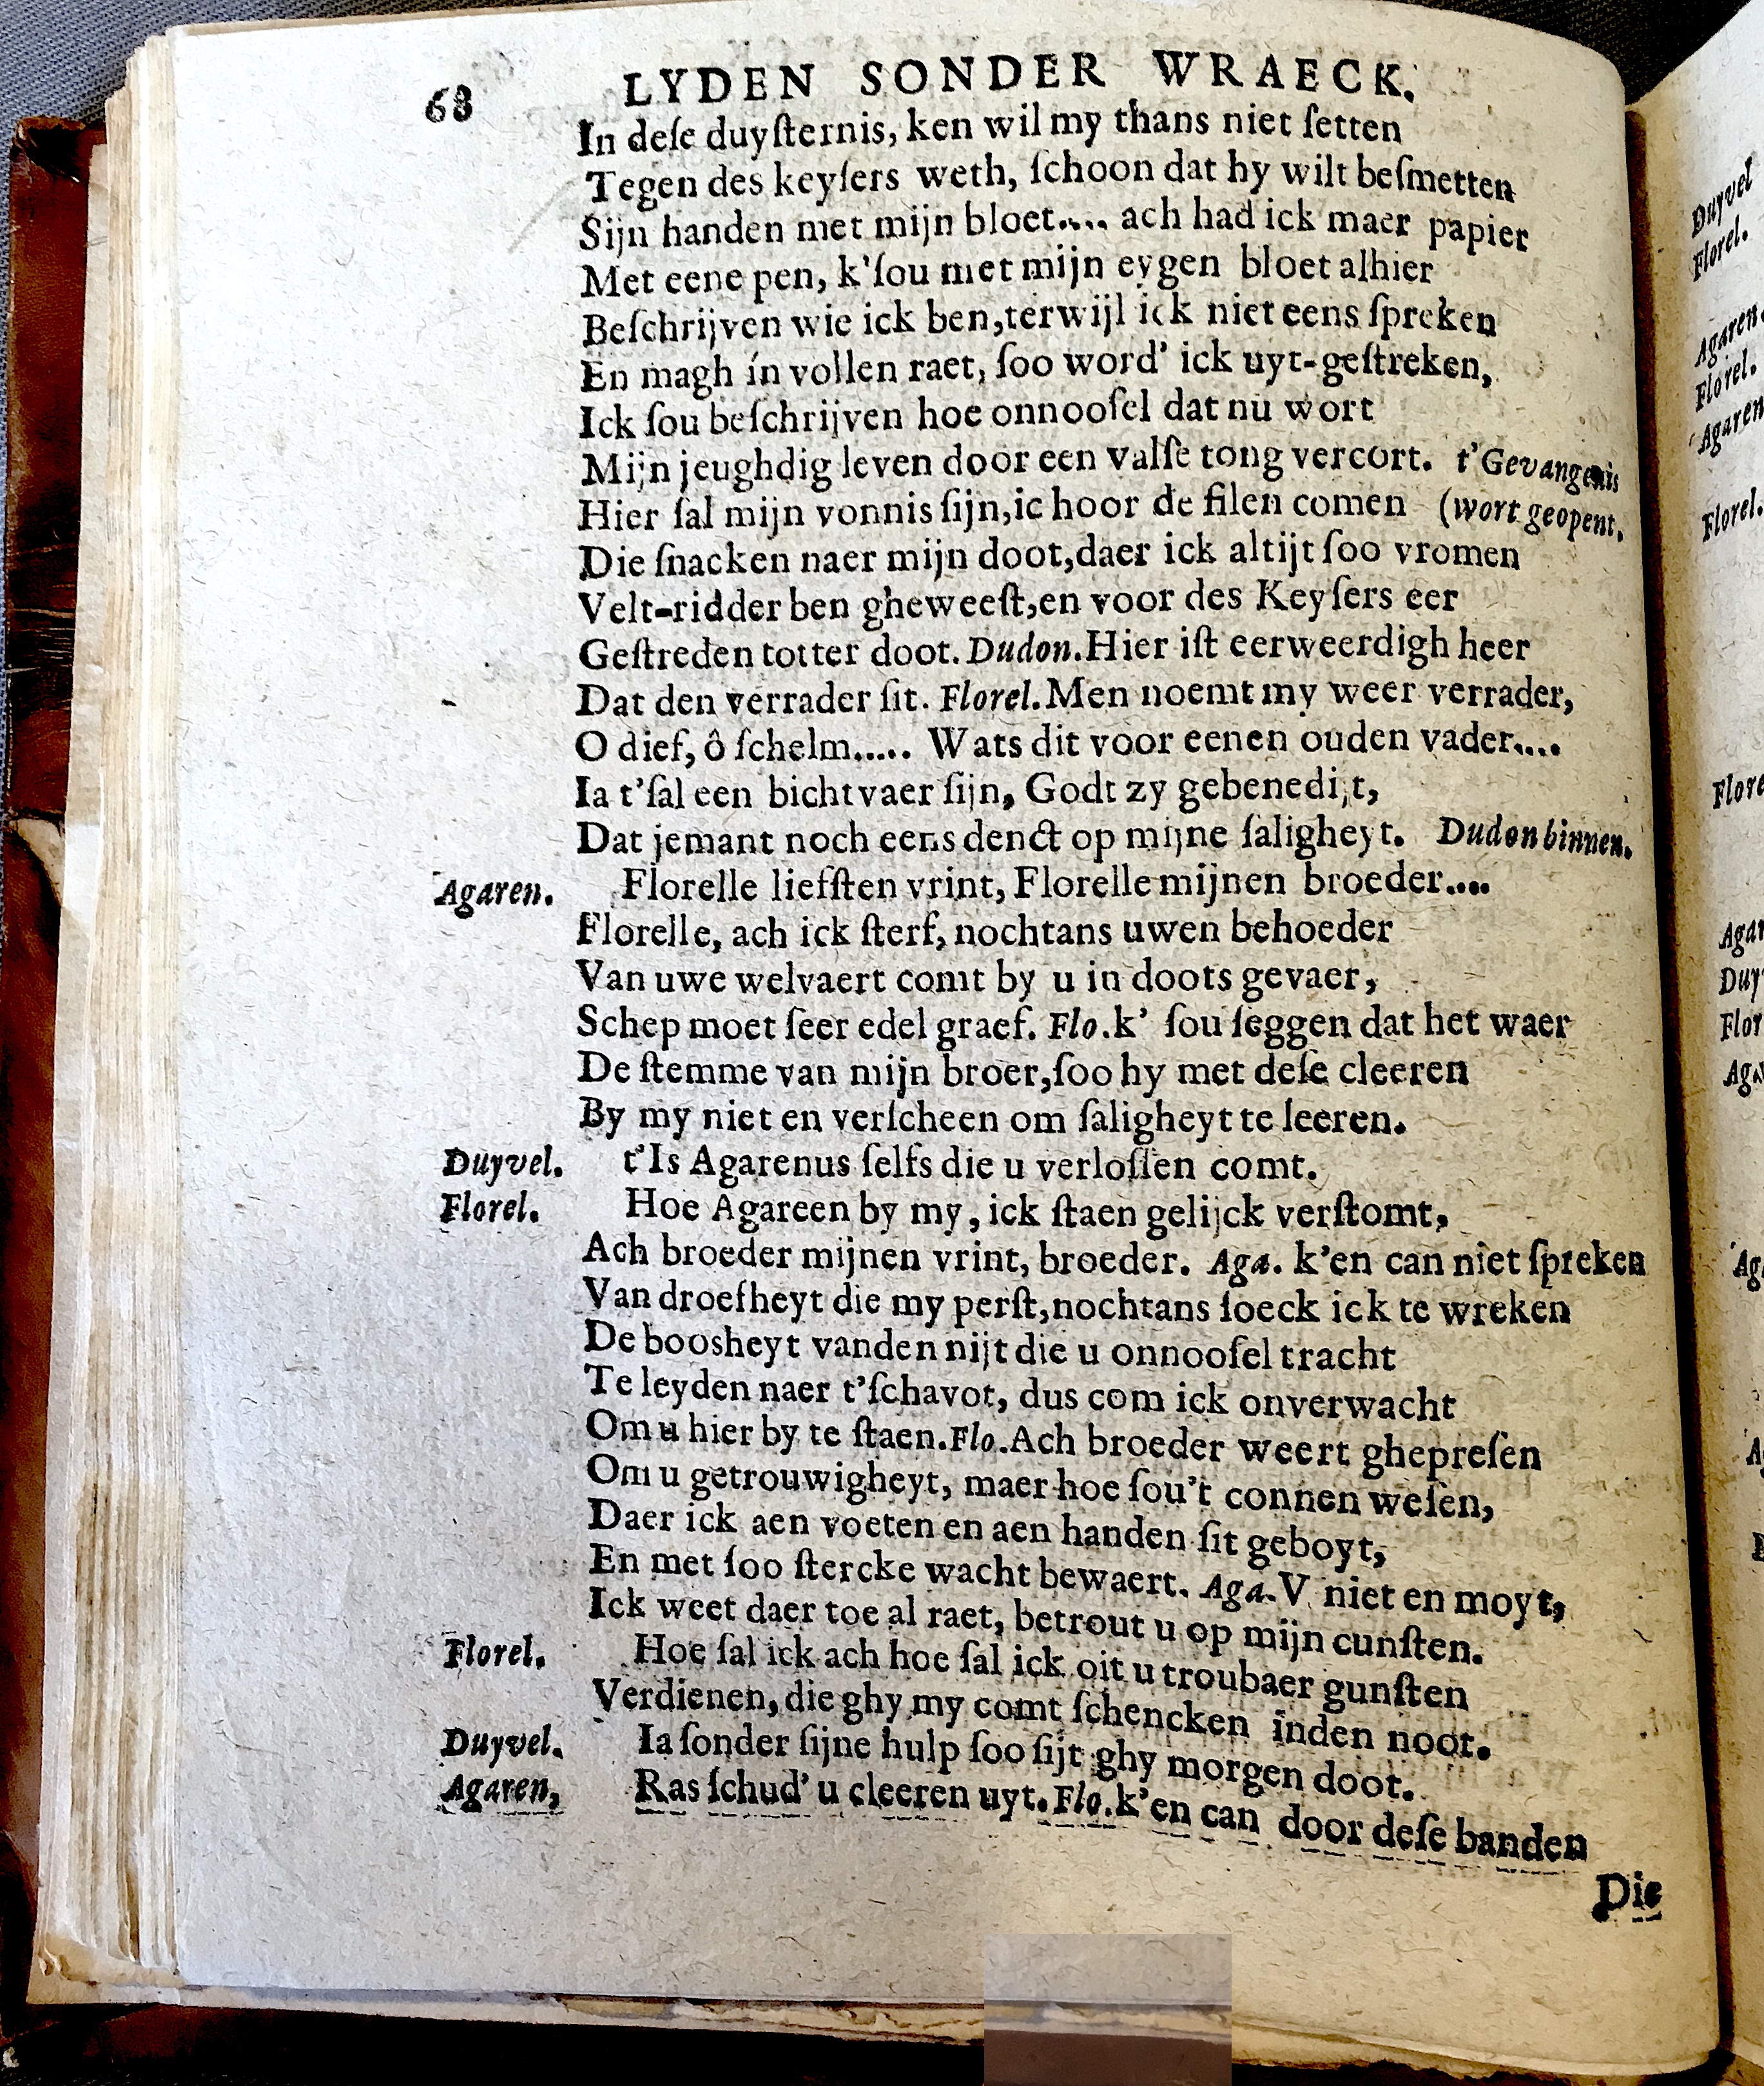 68 LYDEN SONDER WRAECK.
In deſe duyſternis, ken wil my thans niet ſetten
Tegen des keyſers weth, ſchoon dat hy wilt beſmetten
Sijn handen met mijn bloet.... ach had ick maer papier
Met eene pen, k'ſou met mijn eygen bloet alhier
Beſchrijven wie ick ben,terwijl ick niet eens ſpreken
En magh in vollen raet, ſoo word' ick uyt-geſtreken,
Ick ſou beſchrijven hoe onnooſel dat nu wort
Mijn jeughdig leven door een valſe tong vercort. t'Gevangenis
Hier ſal mijn vonnis ſijn,ic hoor de filen comen (wort geopent.
Die ſnacken naer mijn doot,daer ick altijt ſoo vromen
Velt-ridder ben gheweeſt,en voor des Keyſers eer
Geſtreden totter doot. Dudon.Hier iſt eerweerdigh heer
Dat den verrader ſit. Florel.Men noemt my weer verrader,
O dief, ô ſchelm..... Wats dit voor eenen ouden vader....
Ia t'ſal een bichtvaer ſijn, Godt zy gebenedijt,
Dat jemant noch eens denct op mijne ſaligheyt. Dudon binnen.
Agaren. Florelle liefſten vrint, Florelle mijnen broeder....
Florelle, ach ick ſterf, nochtans uwen behoeder
Van uwe welvaert comt by u in doots gevaer,
Schep moet ſeer edel graef. Flo.k' ſou ſeggen dat het waer
De ſtemme van mijn broer,ſoo hy met deſe cleeren
By my niet en verſcheen om ſaligheyt te leeren.
Duyvel. t'Is Agarenus ſelfs die u verloſſen comt.
Florel. Hoe Agareen by my, ick ſtaen gelijck verſtomt,
Ach broeder mijnen vrint, broeder. Aga. k'en can niet ſpreken
Van droefheyt die my perſt,nochtans ſoeck ick te wreken
De boosheyt vanden nijt die u onnooſel tracht
Te leyden naer t'ſchavot, dus com ick onverwacht
Om u hier by te ſtaen.Flo.Ach broeder weert ghepreſen
Om u getrouwigheyt, maer hoe ſou't connen weſen,
Daer ick aen voeten en aen handen ſit geboyt,
En met ſoo ſtercke wacht bewaert. Aga.V niet en moyt,
Ick weet daer toe al raet, betrout u op mijn cunſten.
Florel. Hoe ſal ick ach hoe ſal ick oit u troubaer gunſten
Verdienen, die ghy my comt ſchencken inden noot.
Duyvel. Ia ſonder ſijne hulp ſoo ſijt ghy morgen doot.
Agaren, Ras ſchud' u cleeren uyt.Flo.k'en can door deſe banden
Die
Duyvel
Florel.
Agaren.
Florel.
Agaren
Florel.